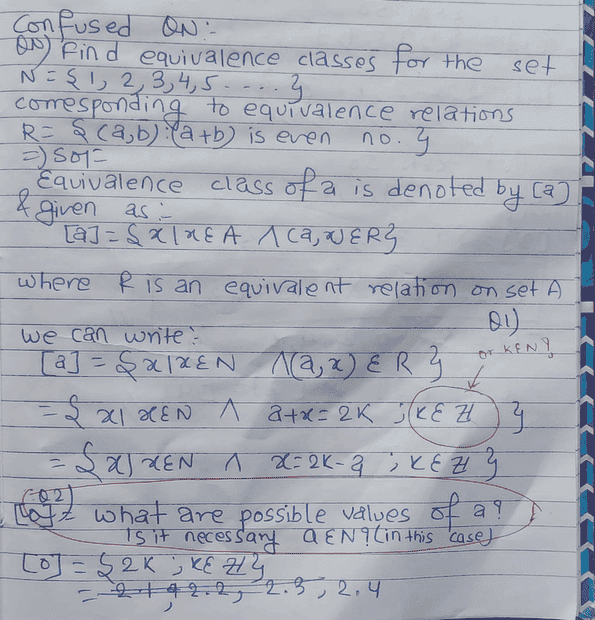 Confused QN:-
QN) Find equivalence classes for the set
N = { 1, 2, 3, 4, 5 ..... }
corresponding to equivalence relations
R = { (a,b) : (a+b) is even no. }
=) Sol=
Equivalence class of a is denoted by [a]
& given as :-
[a] = { x | x ∈ A ∧ (a, x) ∈ R }
where R is an equivalent relation on set A
Q1)
we can write:
or K ∈ N?
[a] = { x | x ∈ N ∧ (a, x) ∈ R }
= { x | x ∈ N ∧ a+x = 2K ; K ∈ ℤ }
= { x | x ∈ N ∧ x = 2K - a ; K ∈ ℤ }
(Q2)
[0] = what are possible values of a?
Is it necessary a ∈ N? (in this case)
[0] = { 2K ; K ∈ ℤ }
= 2.1, 2.2, 2.3, 2.4